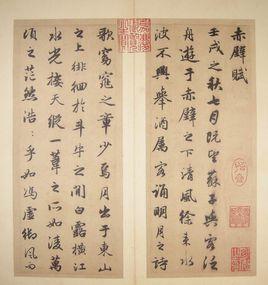 赤壁賦
壬戌之秋七月既望蘇子與客泛
舟遊于赤壁之下清風徐來水
波不興舉酒屬客誦明月之詩
歌窈窕之章少焉月出于東山
之上徘徊於斗牛之間白露橫江
水光接天縱一葦之所如淩萬
頃之茫然浩〻乎如馮虛御風而